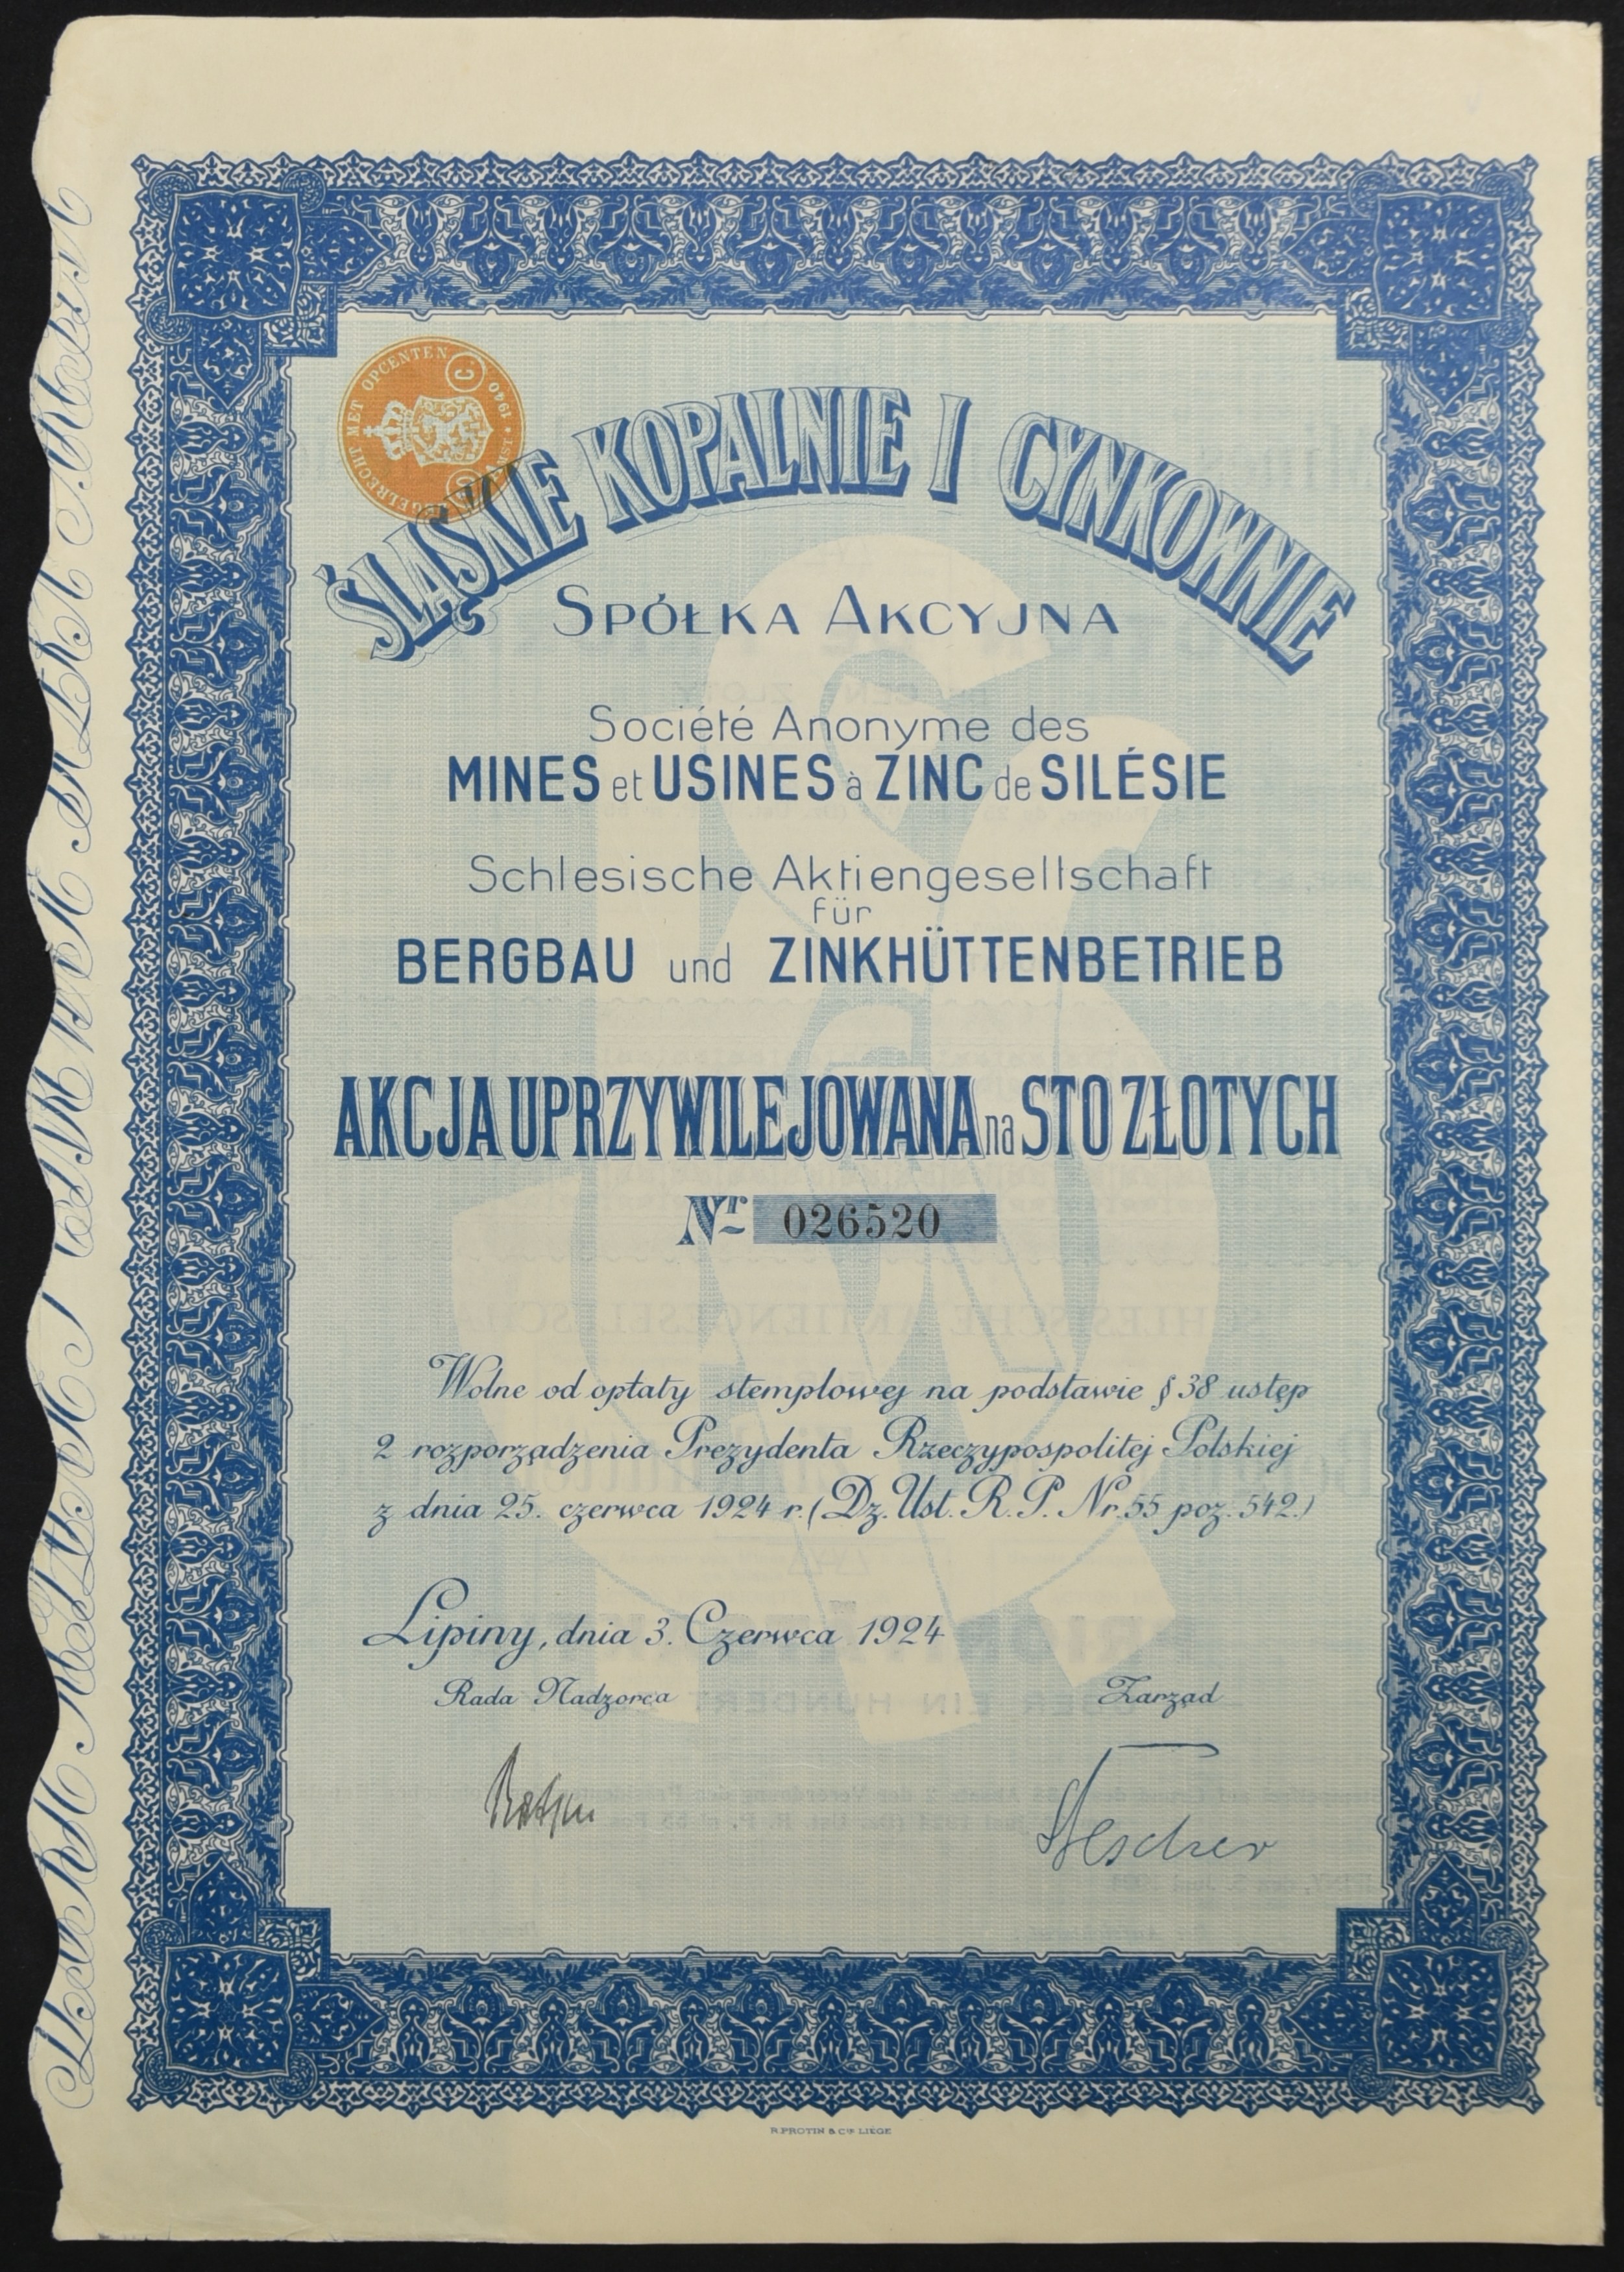 ZEGELRECHT MET OPCENTEN C 1940
ŚLĄSKIE KOPALNIE I CYNKOWNIE
SPÓŁKA AKCYJNA
Société Anonyme des
MINES et USINES à ZINC de SILÉSIE
Schlesische Aktiengesellschaft
für
BERGBAU und ZINKHÜTTENBETRIEB
AKCJA UPRZYWILEJOWANA na STO ZŁOTYCH
Nr 026520
Wolne od opłaty stemplowej na podstawie § 38 ustęp
2 rozporządzenia Prezydenta Rzeczypospolitej Polskiej
z dnia 25. czerwca 1924 r. (Dz. Ust. R. P. Nr. 55 poz. 542.)
Lipiny, dnia 3. Czerwca 1924
Rada Nadzorca Zarząd
R. PROTIN & Cie LIÈGE